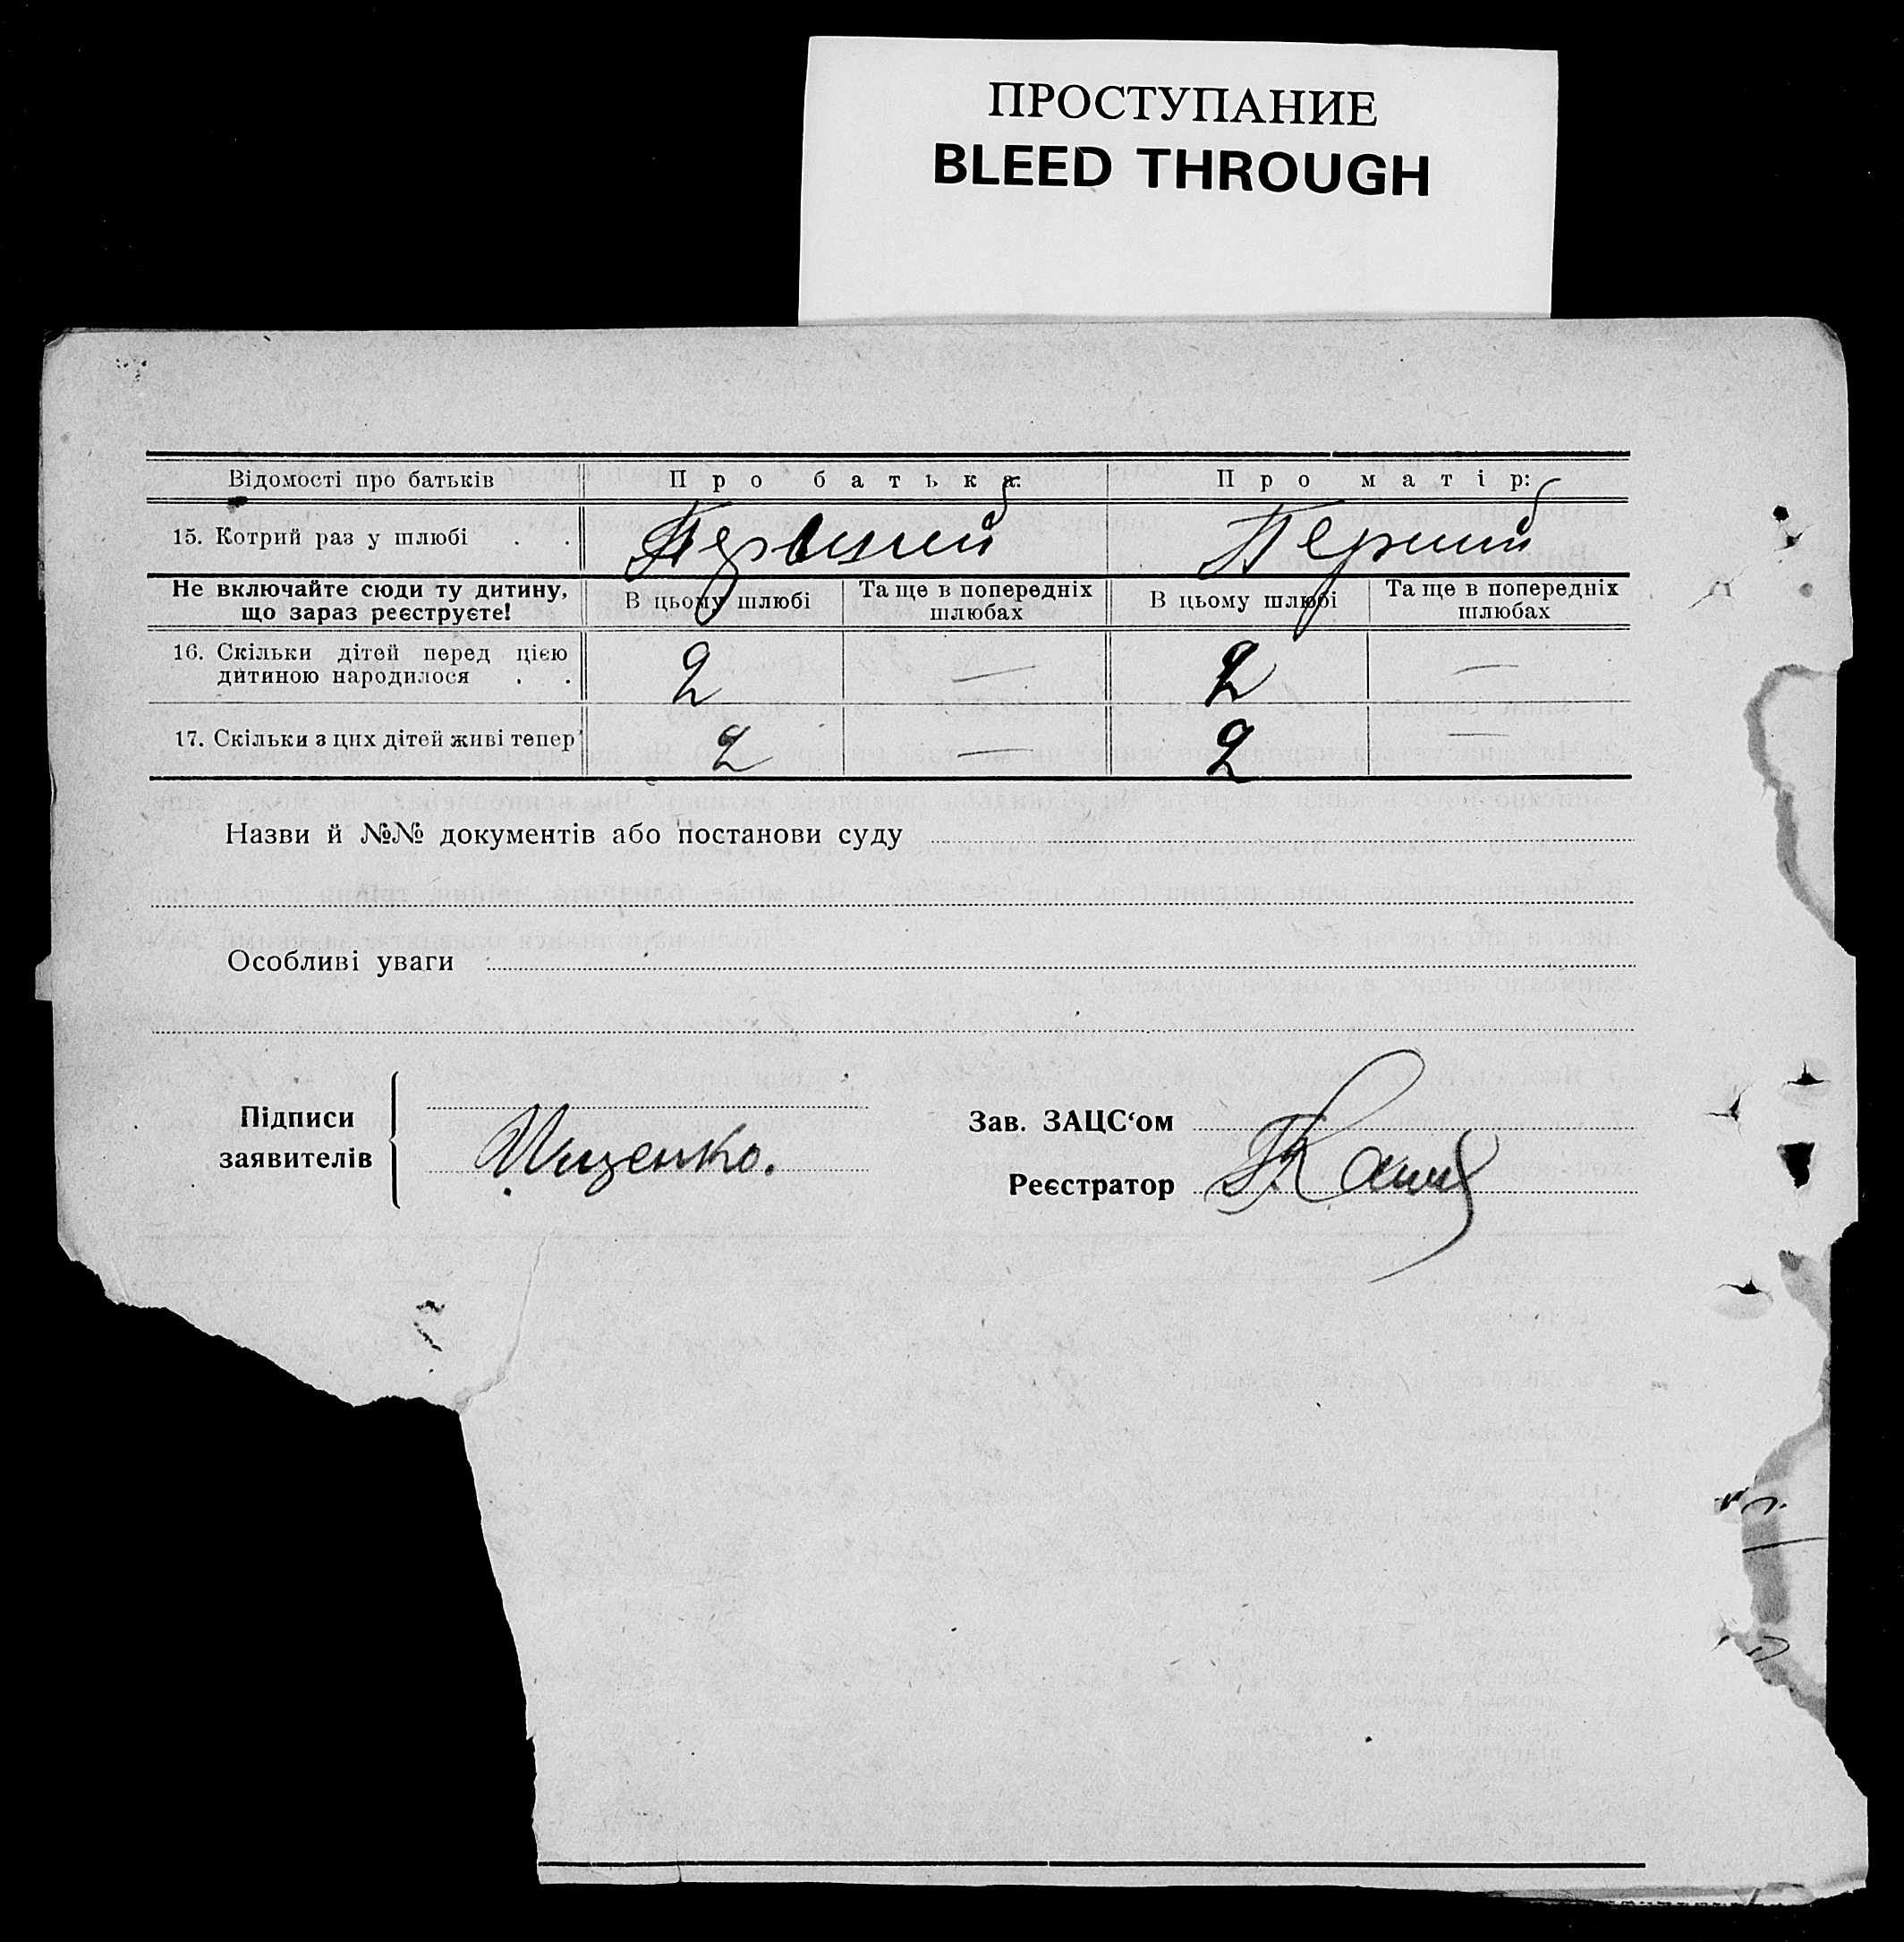 ПРОСТУПАНИЕ
BLEED THROUGH
Відомості про батьків Про батька: Про матір:
15. Котрий раз у шлюбі . . Первший Перший
Не включайте сюди ту дитину, що зараз реєструєте! В цьому шлюбі Та ще в попередніх шлюбах В цьому шлюбі Та ще в попередніх шлюбах
16. Скільки дітей перед цією дитиною народилося . . 2 — 2 —
17. Скільки з цих дітей живі тепер 2 — 2 —
Назви й №№ документів або постанови суду
Особливі уваги
Підписи заявителів
Ищенко.
Зав. ЗАЦС‘ом
Реєстратор